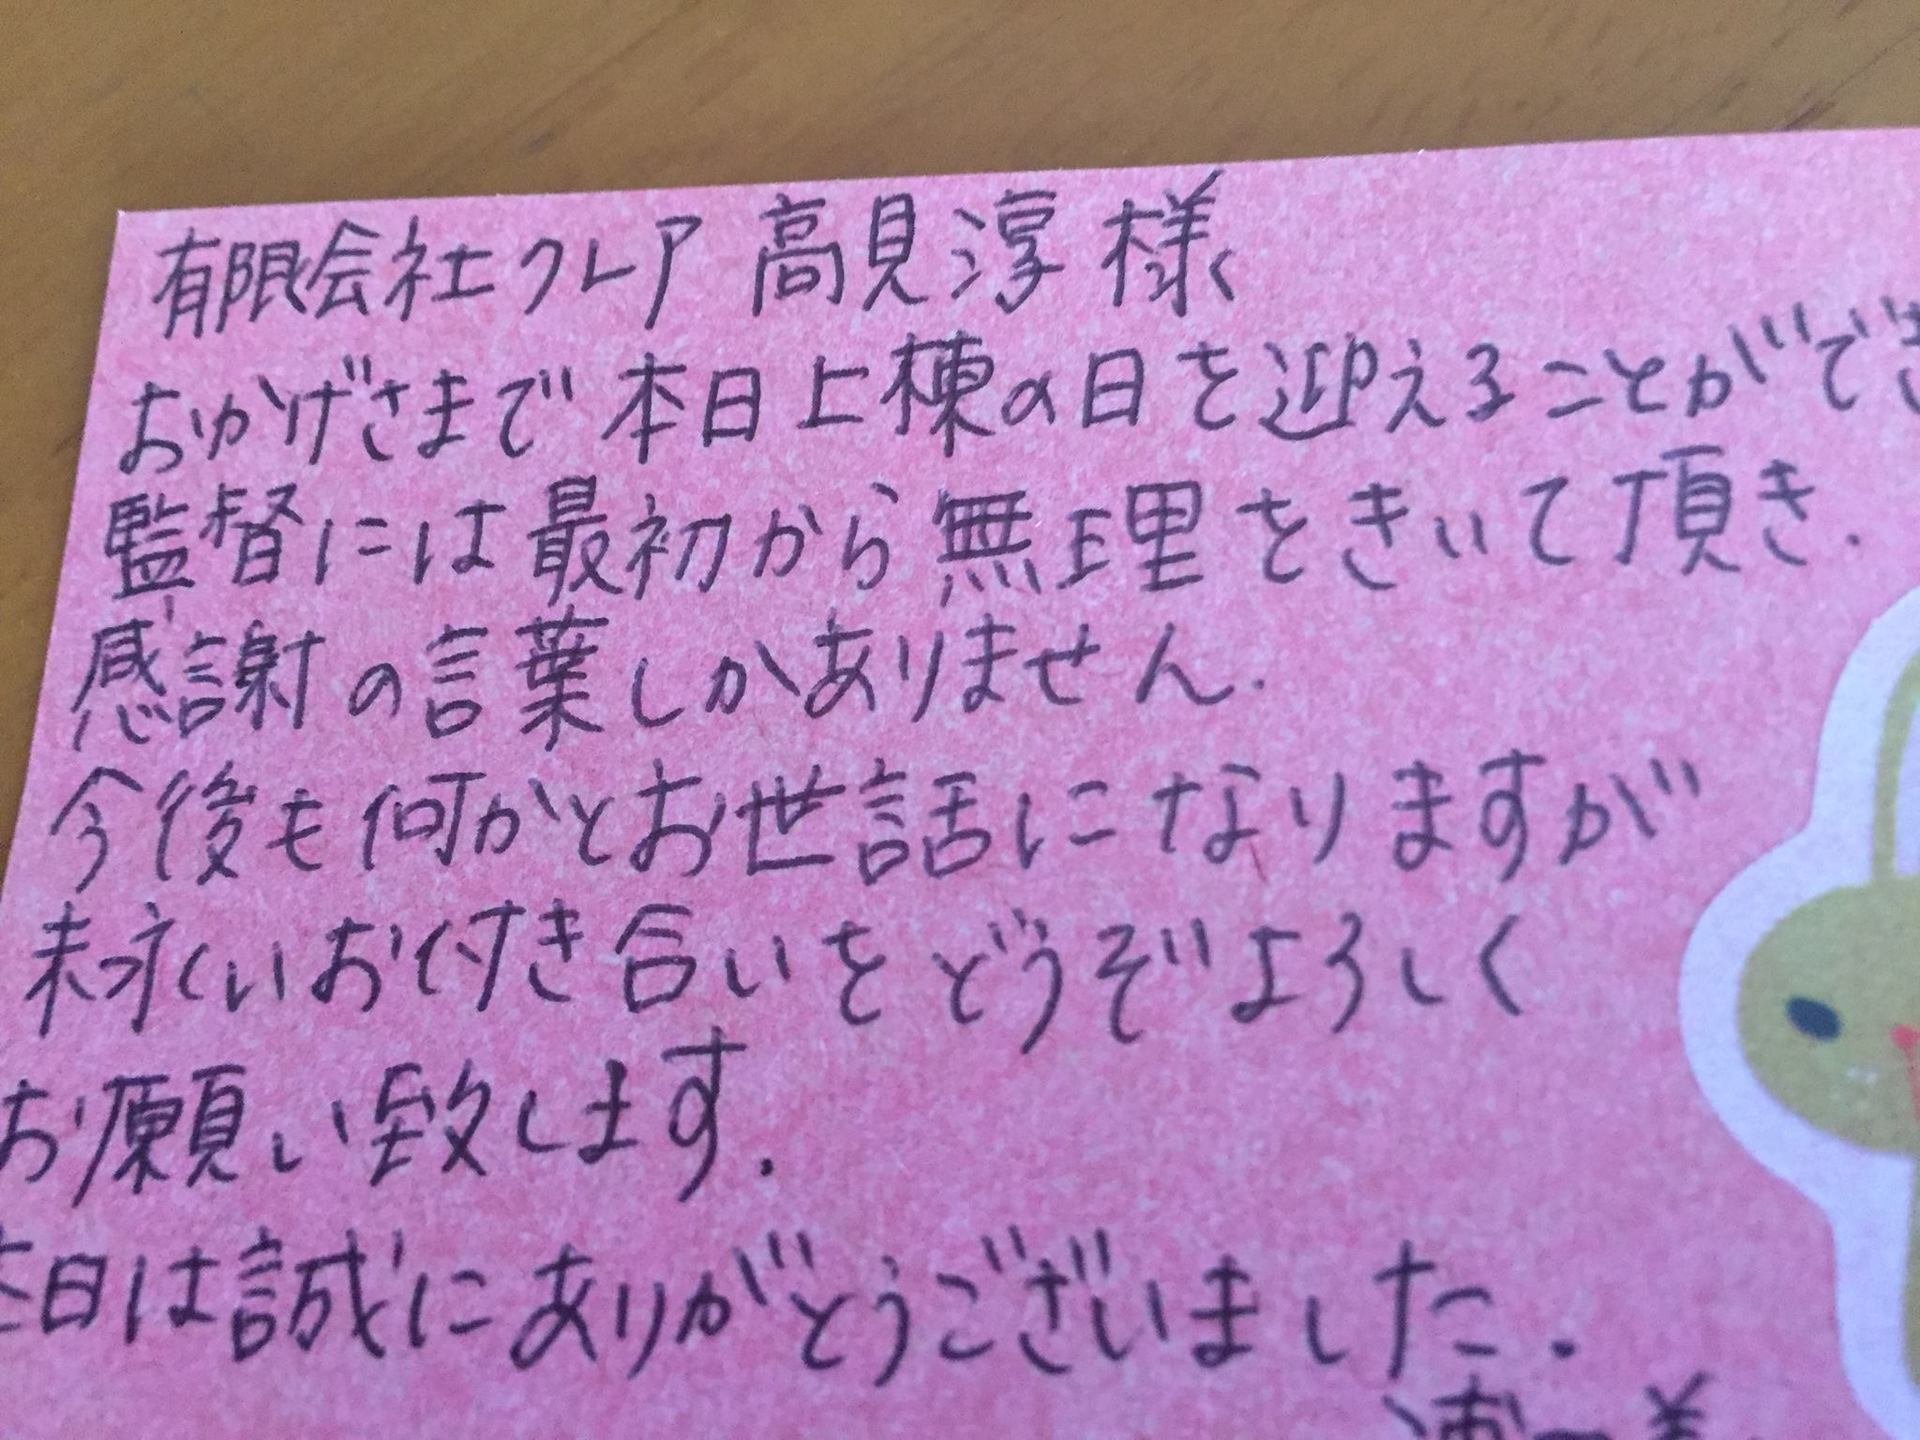 有限会社クレア 高見淳 様
おかげさまで本日上棟の日を迎えることができ
監督には最初から無理をきいて頂き.
感謝の言葉しかありません.
今後も何かとお世話になりますが
末永くいお付き合いをどうぞよろしく
お願い致します.
本日は誠にありがとうございました.